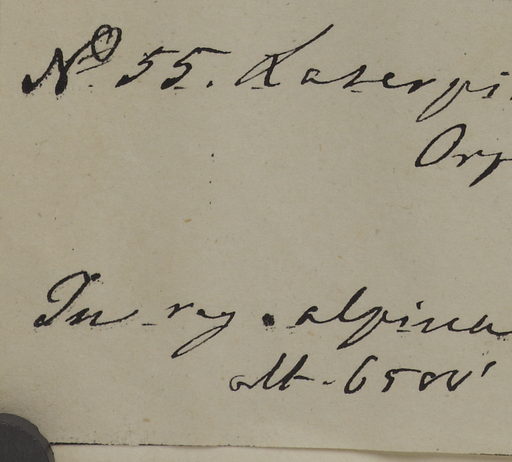 No 55. Laserpi
Orp
In reg. alpina
alt. 6500'